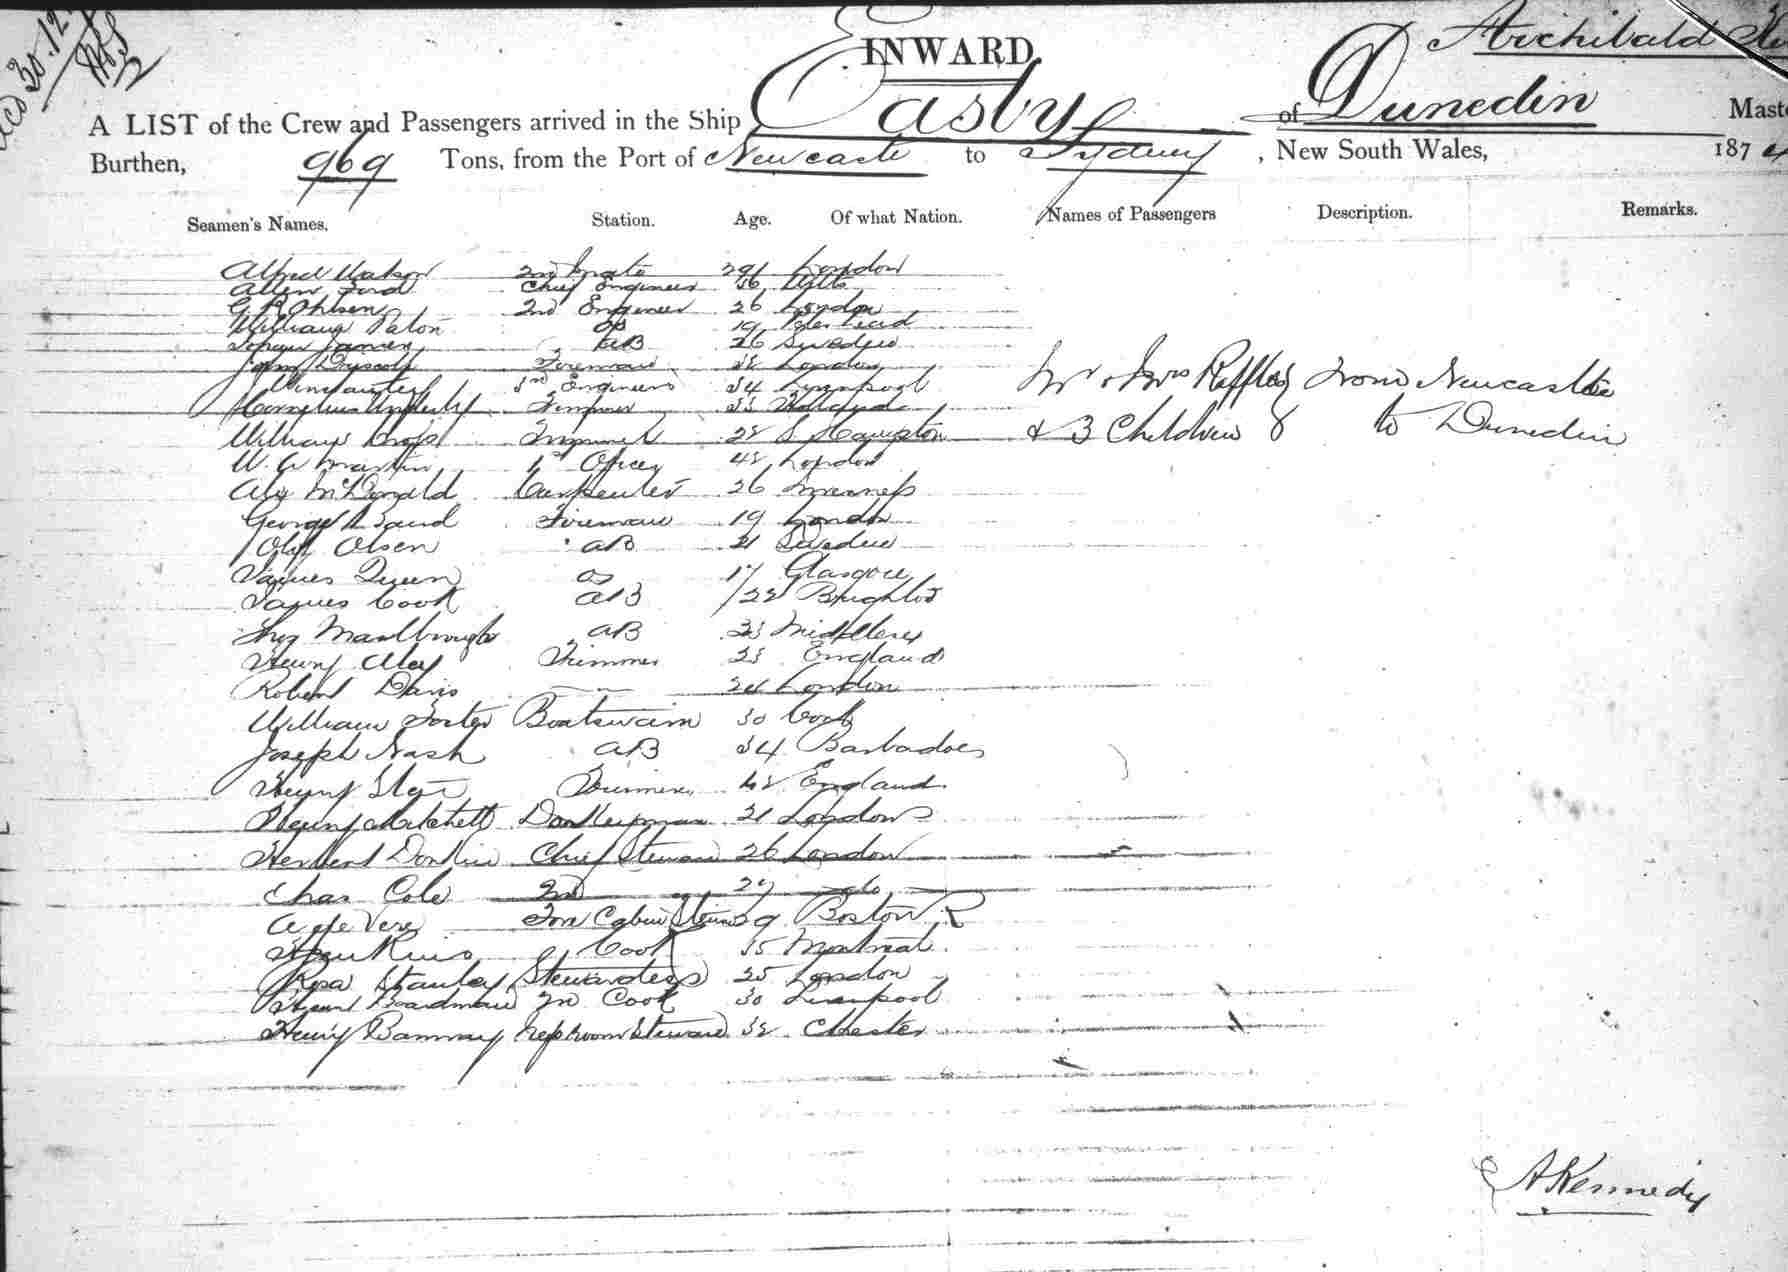 30.12
INWARD
Archibald
A LIST of the Crew and Passengers arrived in the Ship Easby of Dunedin Maste
Burthen, 969 Tons, from the Port of Newcastle to Sydney, New South Wales, 1874
Seamen's Names. Station. Age. Of what Nation. Names of Passengers Description. Remarks.
Alfred 2nd Mate 29 London
Allen Ford Chief Engineer 36
G R Ohlsen 2nd Engineer 26 London
William Paton OS 19 Peterhead
James AB 26 Sweden
John Driscoll Fireman 38 London
3rd Engineer 34 Liverpool Mr & Mrs Raffles from Newcastle
Cornelius Fireman 33
William Trimmer 28 S Hampton & 3 Children to Dunedin
W. A Martin 1st Officer 42 London
Alex McDonald Carpenter 26 Inverness
George Baird Fireman 19 London
Olif Olsen AB 21 Sweden
James Queen OS 17 Glasgow
James Cook AB 22 Brighton
Thos Marlbrough AB 23 Middlesex
Henry Trimmer 23 England
Robert Davis 24 London
William Foster Boatswain 30 Cork
Joseph Nash AB 34 Barbadoes
Henry Trimmer 42 England
Henry Mitchell Donkeyman 21 London
Herbert Donkin Chief Steward 26 London
Chas Cole 2nd 27 do
A de Vere Fore Cabin Steward 29 Boston
Cook 35 Montreal
Rosa Stanley Stewardess 25 London
Henry Boardman 2n Cook 30 Liverpool
Henry Messroom Steward 32 Chester
A Kennedy